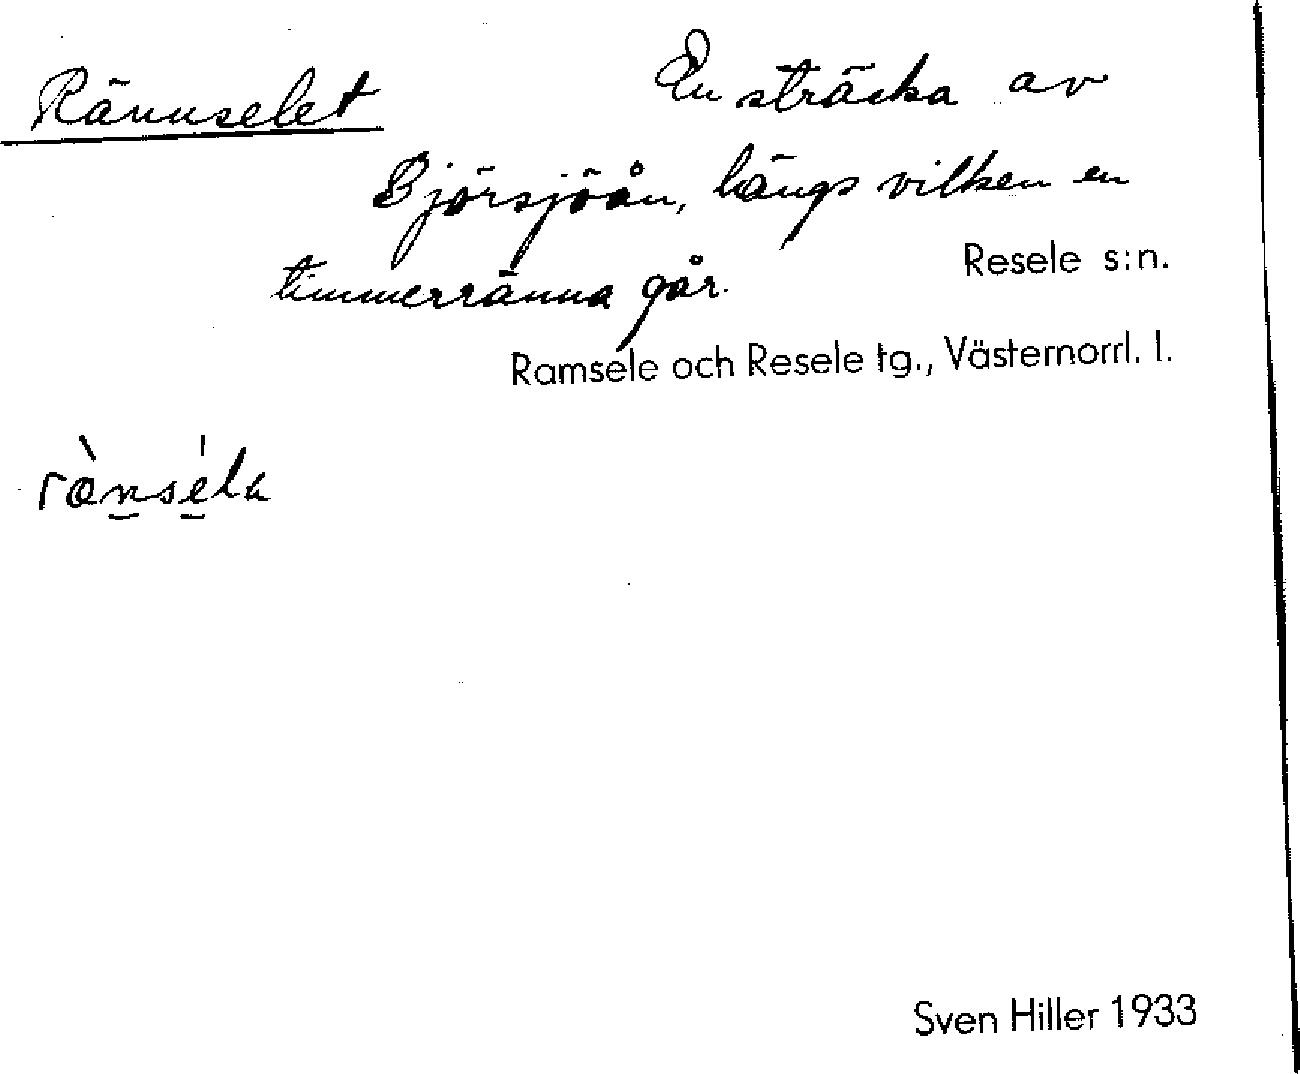 Rännselet En sträcka av
Björsjöån, längs vilken en
timmerränna går.
Resele s:n.
Ramsele och Resele tg., Västernorrl. l.
Sven Hiller 1933